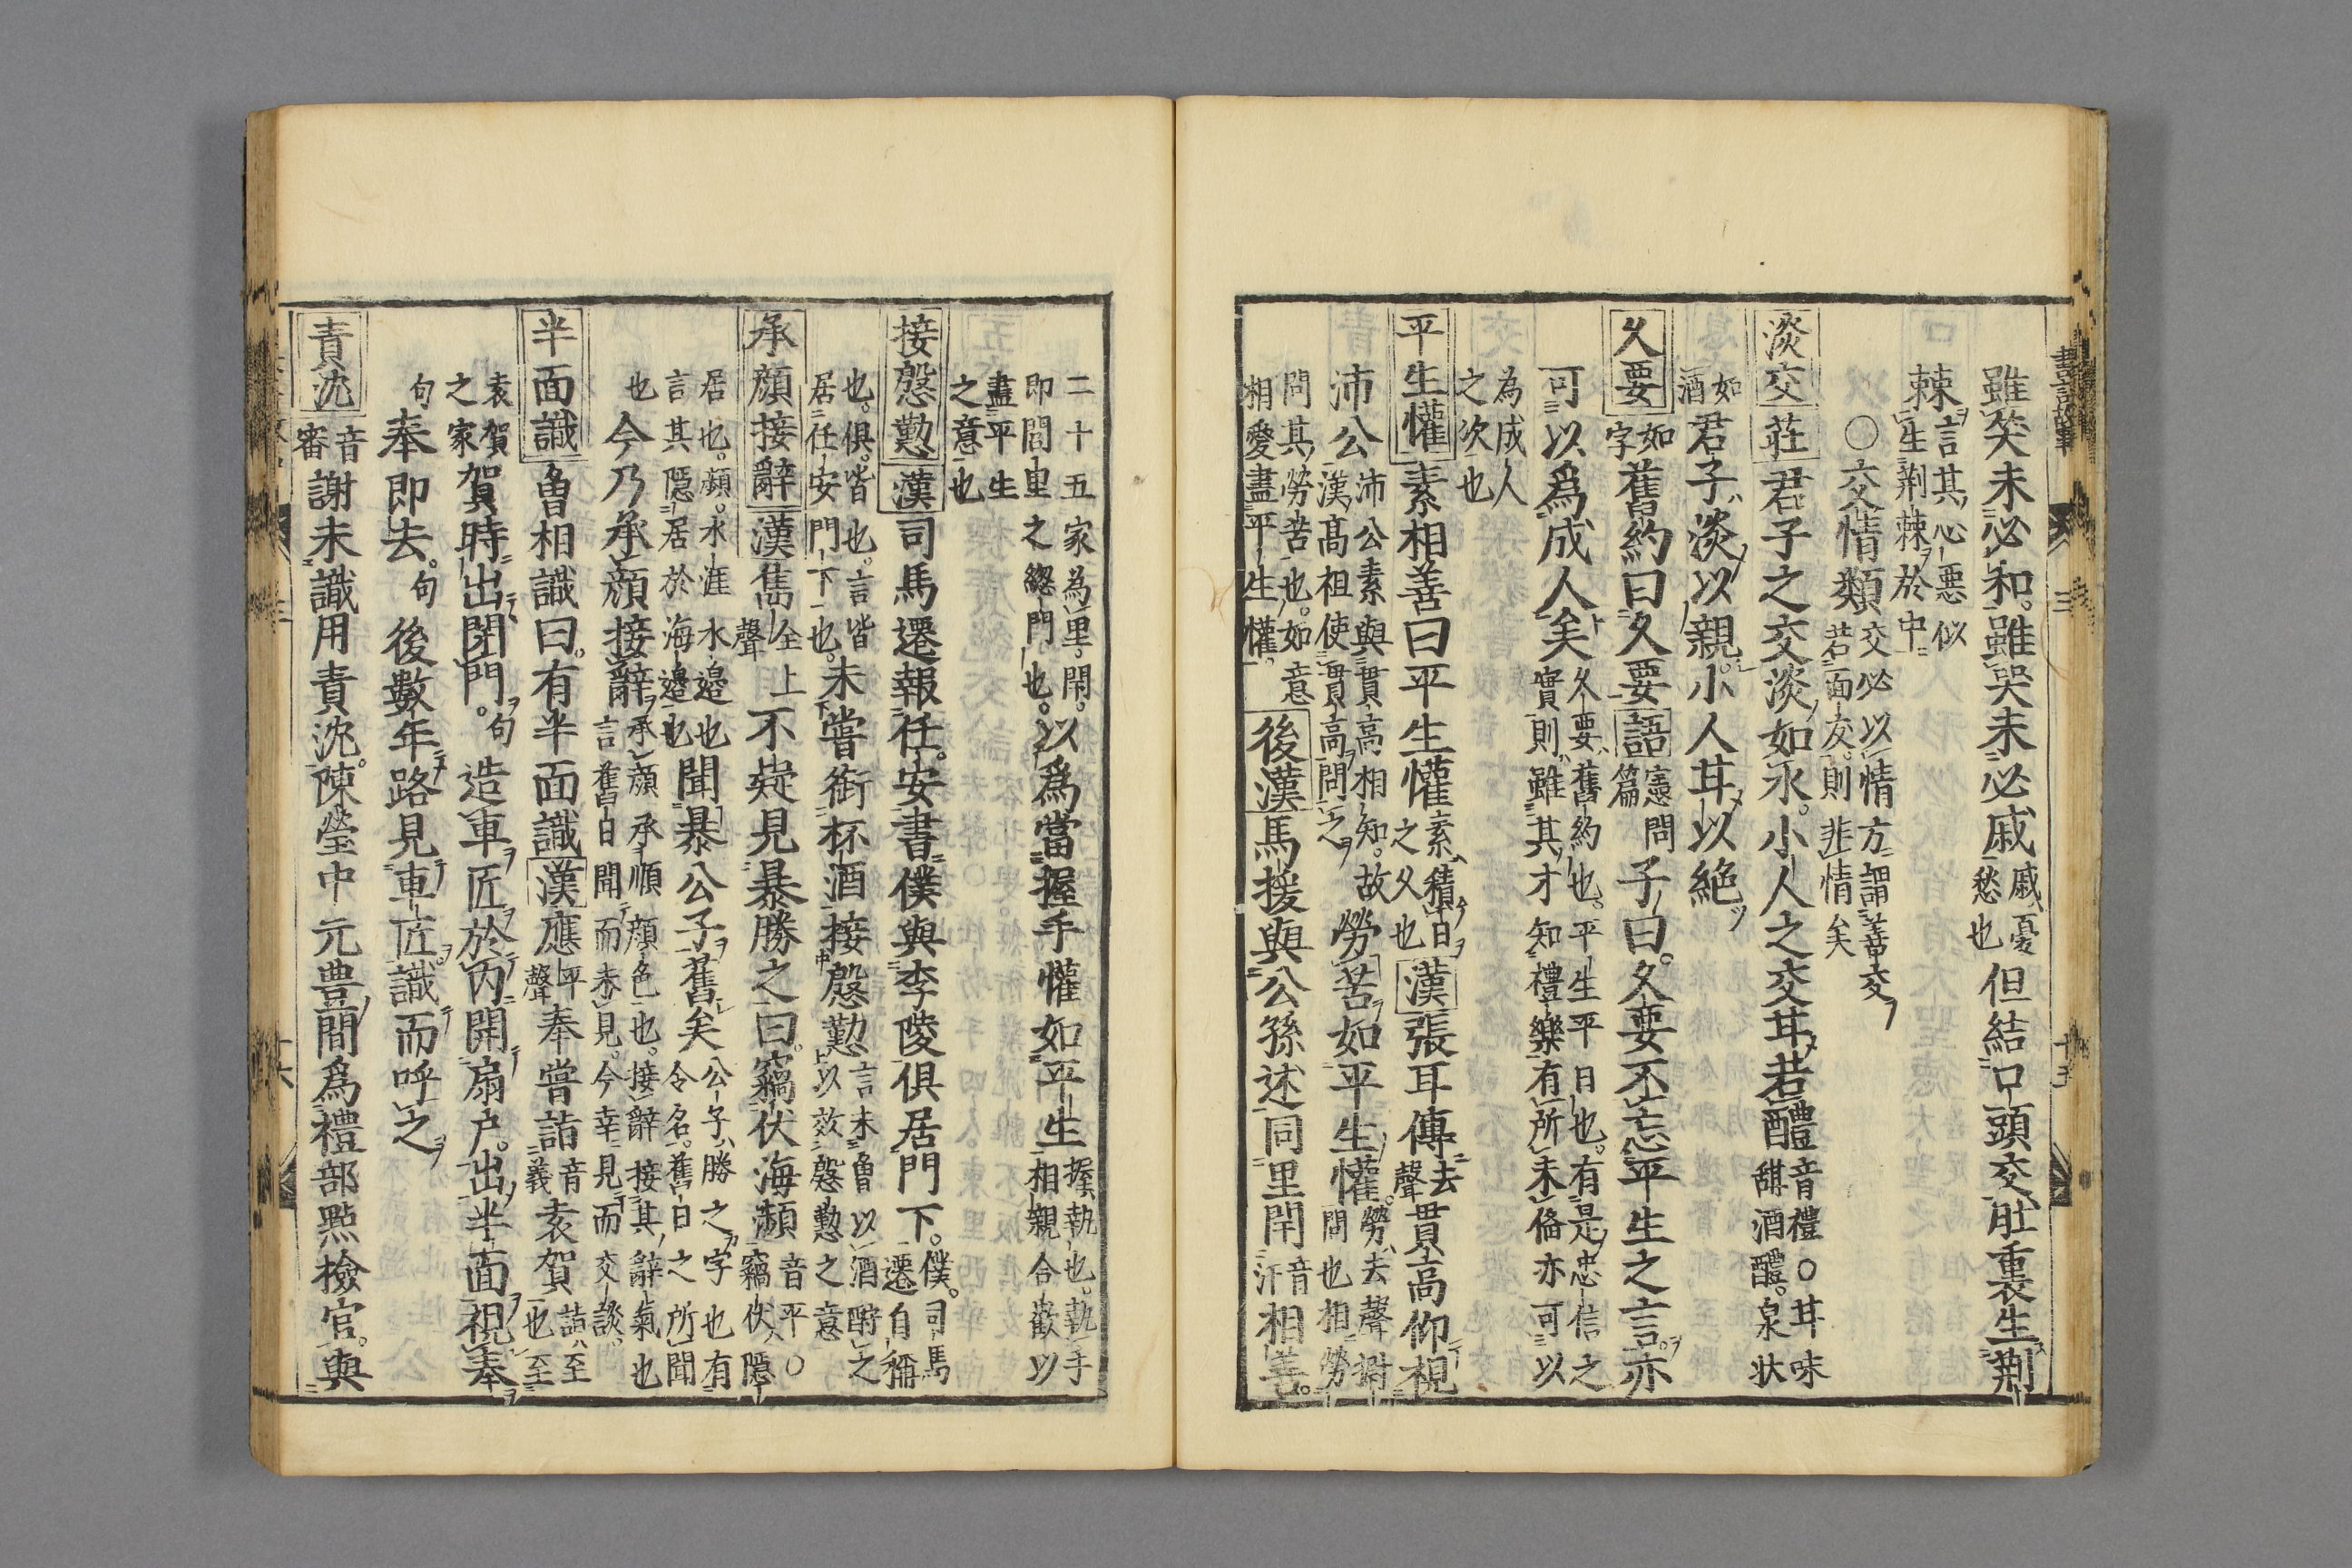 雖笑未必和。雖哭未必戚戚憂愁也但結口頭交肚裏生荆
棘言其心惡似生荆棘於中
○交情類交必以情方謂善交若面友。則非情矣
淡交 莊君子之交淡如水。小人之交甘若醴音禮○甘味甜酒醴。泉状
如酒君子淡以親。小人甘以絶
久要如字舊約曰久要語憲問篇子曰。久要不忘平生之言。亦
可以爲成人矣久要舊約也。平生平日也。有是忠信之實則雖其才知禮樂有所未俻亦可以
為成人之次也
平生懽素相善曰平生懽素積日之久也漢張耳傳去聲貫高仰視
沛公沛公素與貫高相知。故漢高祖使貫高問之勞苦如平生懽。勞去聲謝問也相勞
問其勞苦也。如意相愛盡平生懽後漢馬援與公孫述同里閈音汗相善。
二十五家為里。閈。即閭里之總門也。以爲當握手懽如平生握執也。執手相親合歡以
盡平生之意也
接慇懃漢司馬遷報任。安書僕與李陵俱居門下。僕。司馬遷自稱
也。俱。皆也。言皆居任安門下也。未嘗銜杯酒接慇懃言未曾以酒酹之以效慇懃之意
承顔接辭漢雋全上聲不疑見暴勝之曰。竊伏海瀕音平○竊伏隱
居也。瀕。水涯水邉也言其隱居於海邉也聞暴公子舊矣公子勝之字也有令名。舊日之所聞
也今乃承顔接辭承顔承順顔色也。接辭接其辭氣也言舊日聞而未見。今幸見而交談。
半面識曾相識曰。有半面識漢應平聲奉嘗詣音義袁賀詣至也至
袁賀之家賀時出閉門。句造車匠於内開扇户。出半面視奉
句奉即去。句後數年路見車匠。識而呼之
責沈音審謝未識用責沈。陳瑩中元豊間爲禮部點檢官。與
三
十五